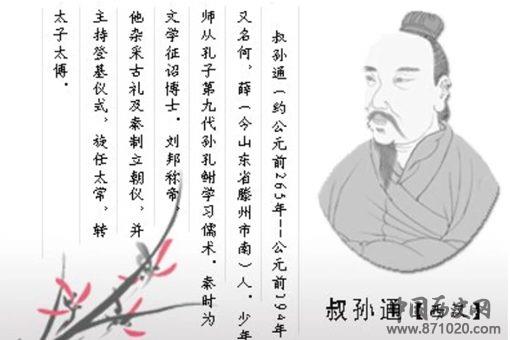 叔孙通(约公元前265年--公元前194年
又名何,薛(今山东省滕州市南)人.少年
师从孔子第九代孙孔鲋学习儒术.秦时为
文学征诏博士.刘邦称帝,
他杂采古礼及秦制立朝仪,并
主持登基仪式,旋任太常,转
太子太傅.
叔孙通【西汉】
中国历史网
www.871020.com